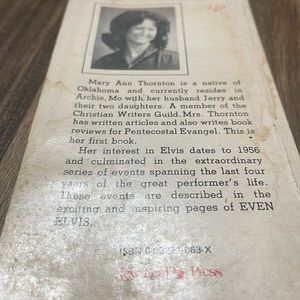 Mary Ann Thornton is a native of
Oklahoma and currently resides in
Archie, Mo with her husband Jerry and
their two daughters. A member of the
Christian Writers Guild, Mrs. Thornton
has written articles and also writes book
reviews for Pentecostal Evangel. This is
her first book.
Her interest in Elvis dates to 1956
and culminated in the extraordinary
series of events spanning the last four
years of the great performer's life.
These events are described in the
exciting and inspiring pages of EVEN
ELVIS.
ISBN 0-89221-063-X
Press